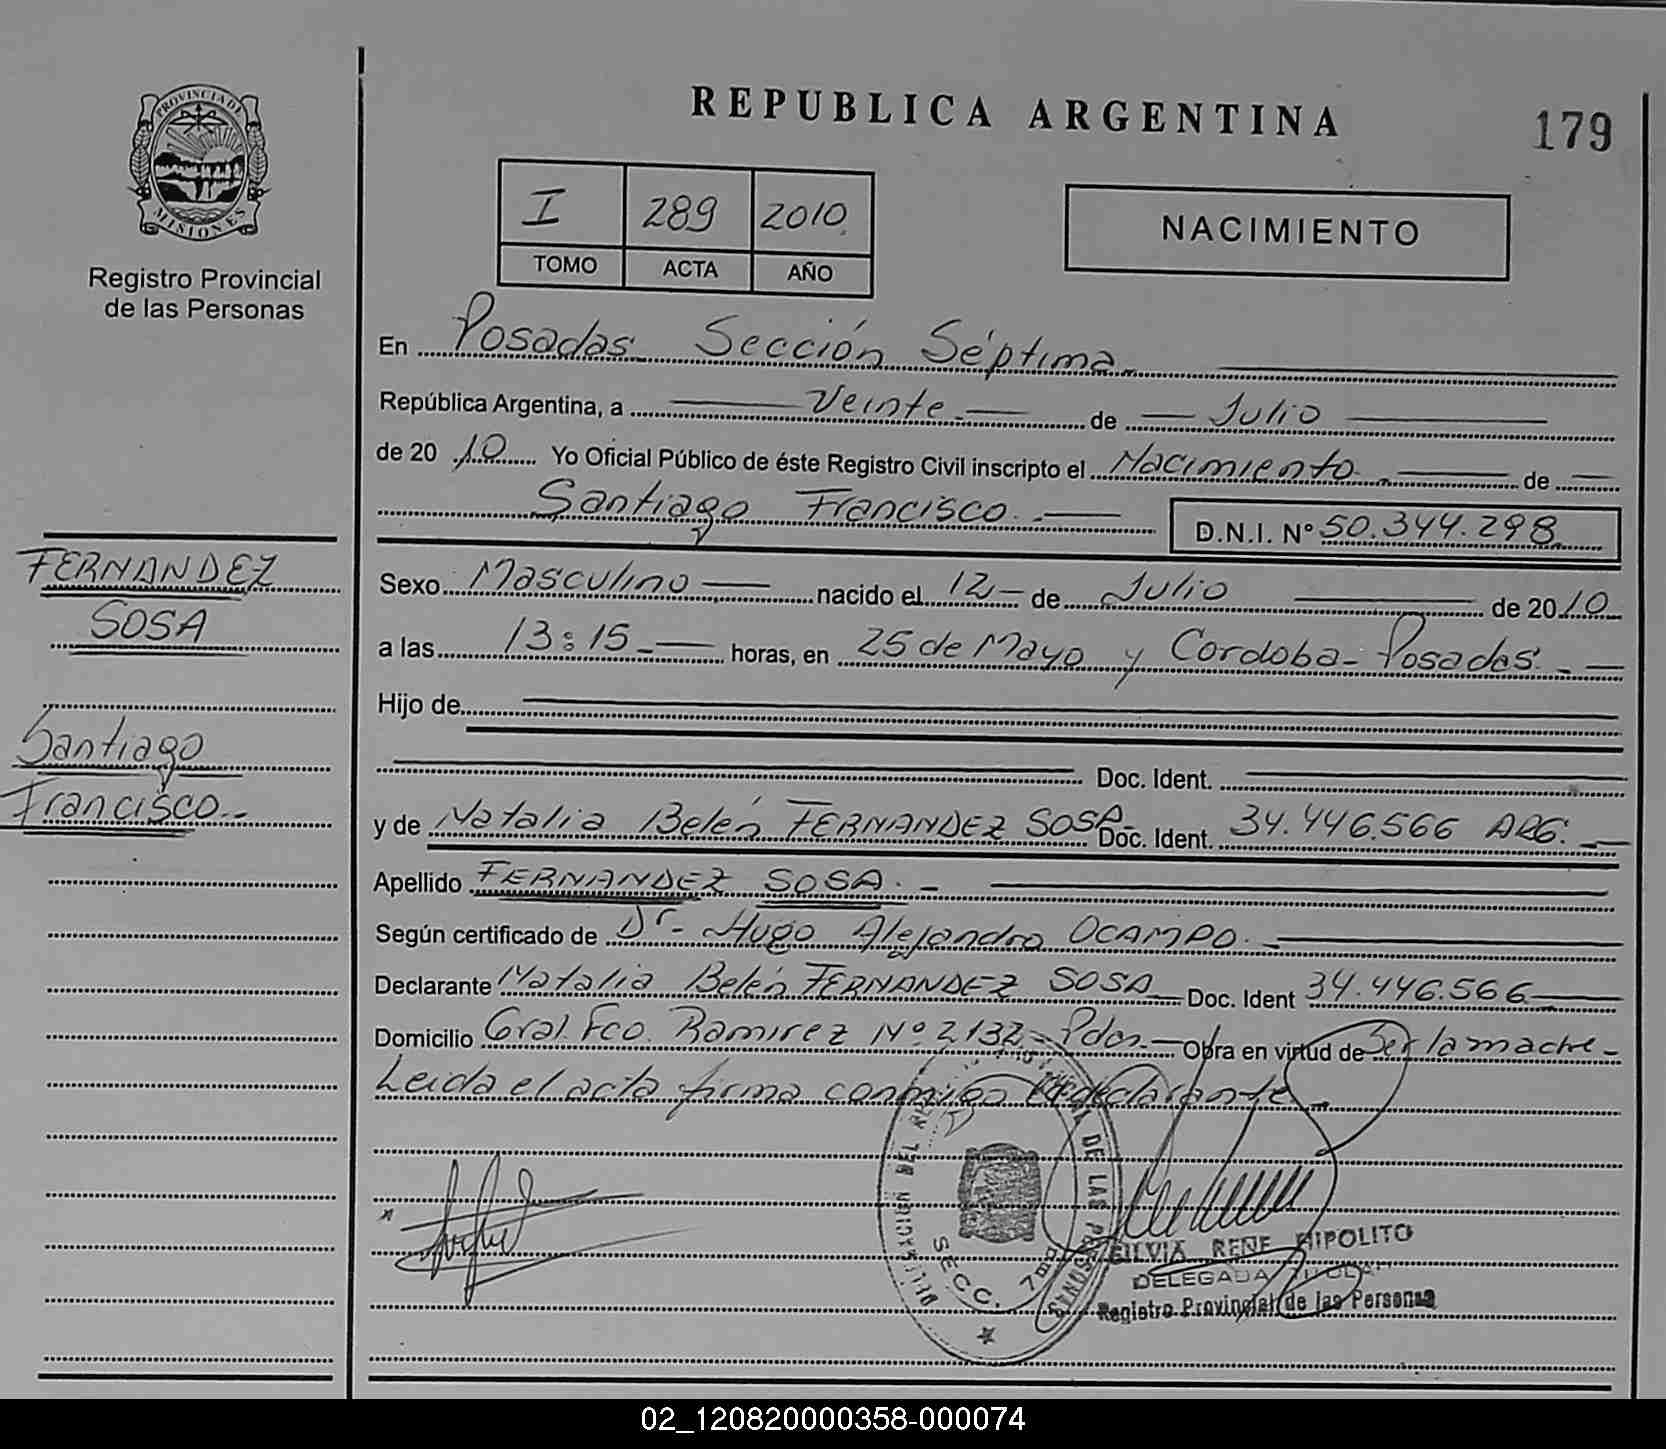 REPUBLICA ARGENTINA
179
PROVINCIA DE
MISIONES
Registro Provincial
de las Personas
I 289 2010
TOMO ACTA AÑO
NACIMIENTO
En Posadas Sección Séptima
República Argentina, a Veinte de Julio
de 20 10 Yo Oficial Público de éste Registro Civil inscripto el Nacimiento de
Santiago Francisco D.N.I. Nº 50.344.298
FERNANDEZ
SOSA
Santiago
Francisco
Sexo Masculino nacido el 12 de Julio de 20 10
a las 13:15 horas, en 25 de Mayo y Cordoba - Posadas
Hijo de
Doc. Ident.
y de Natalia Belén FERNANDEZ SOSA Doc. Ident. 34.446.566 ARG.
Apellido FERNANDEZ SOSA
Según certificado de Dr. Hugo Alejandro OCAMPO
Declarante Natalia Belén FERNANDEZ SOSA Doc. Ident 34.446.566
Domicilio Gral. Fco. Ramirez Nº 2132 - Pdas. Obra en virtud de Ser la madre
Leida el acta firma conmigo la declarante
DE LAS PERSONAS
SECC. 7ma
SILVIA RENE HIPOLITO
DELEGADA TITULAR
Registro Provincial de las Personas
02_120820000358-000074